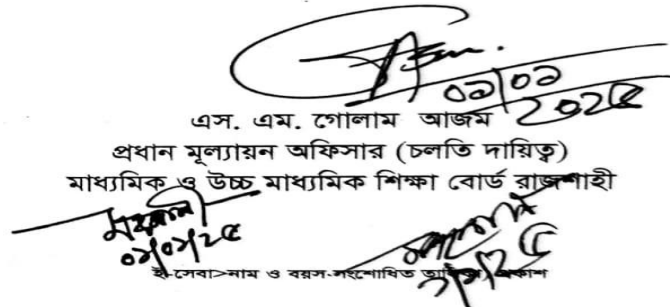 ০১/০১/২০২৫
এস. এম. গোলাম আজম
প্রধান মূল্যায়ন অফিসার (চলতি দায়িত্ব)
মাধ্যমিক ও উচ্চ মাধ্যমিক শিক্ষা বোর্ড রাজশাহী
০১/০১/২৫
ই-সেবা>নাম ও বয়স-সংশোধিত